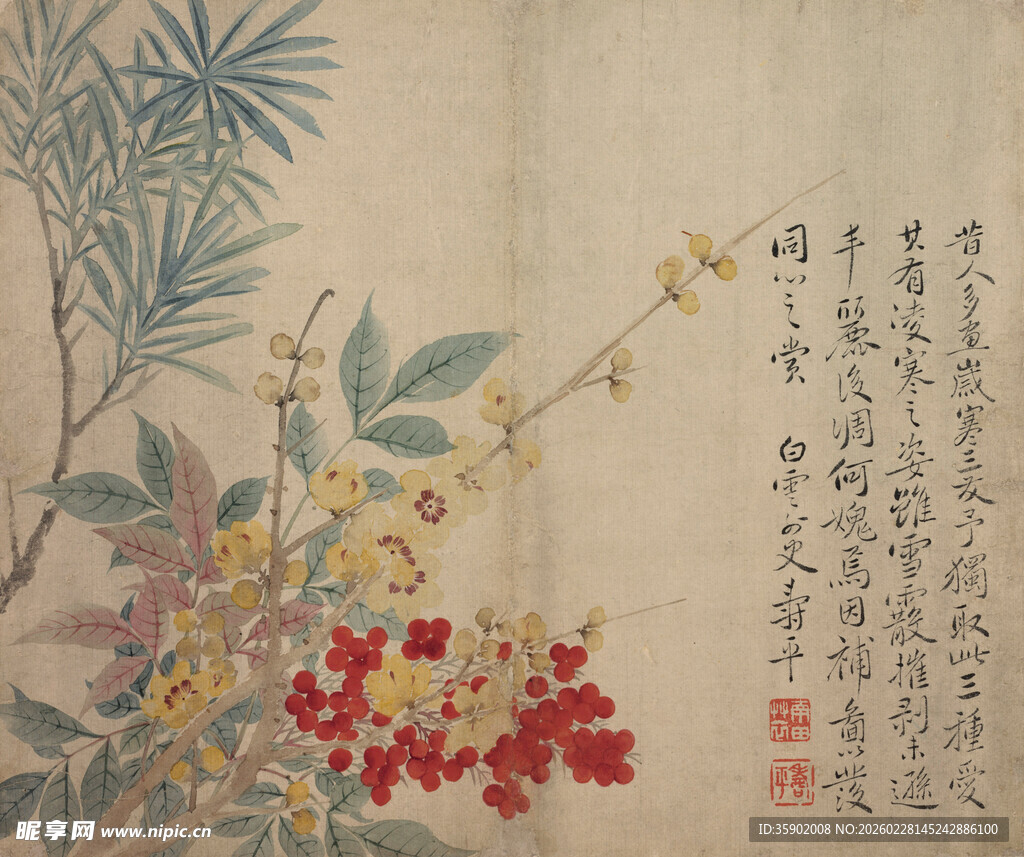 昔人多畫歲寒三友予獨取此三種愛
其有凌寒之姿雖雪霰摧剥未遜
丰麗後凋何媿焉因補圖發
同心之賞
白雲外史壽平
南田
壽平
昵享网 www.nipic.cn
ID:35902008 NO:20260228145242886100